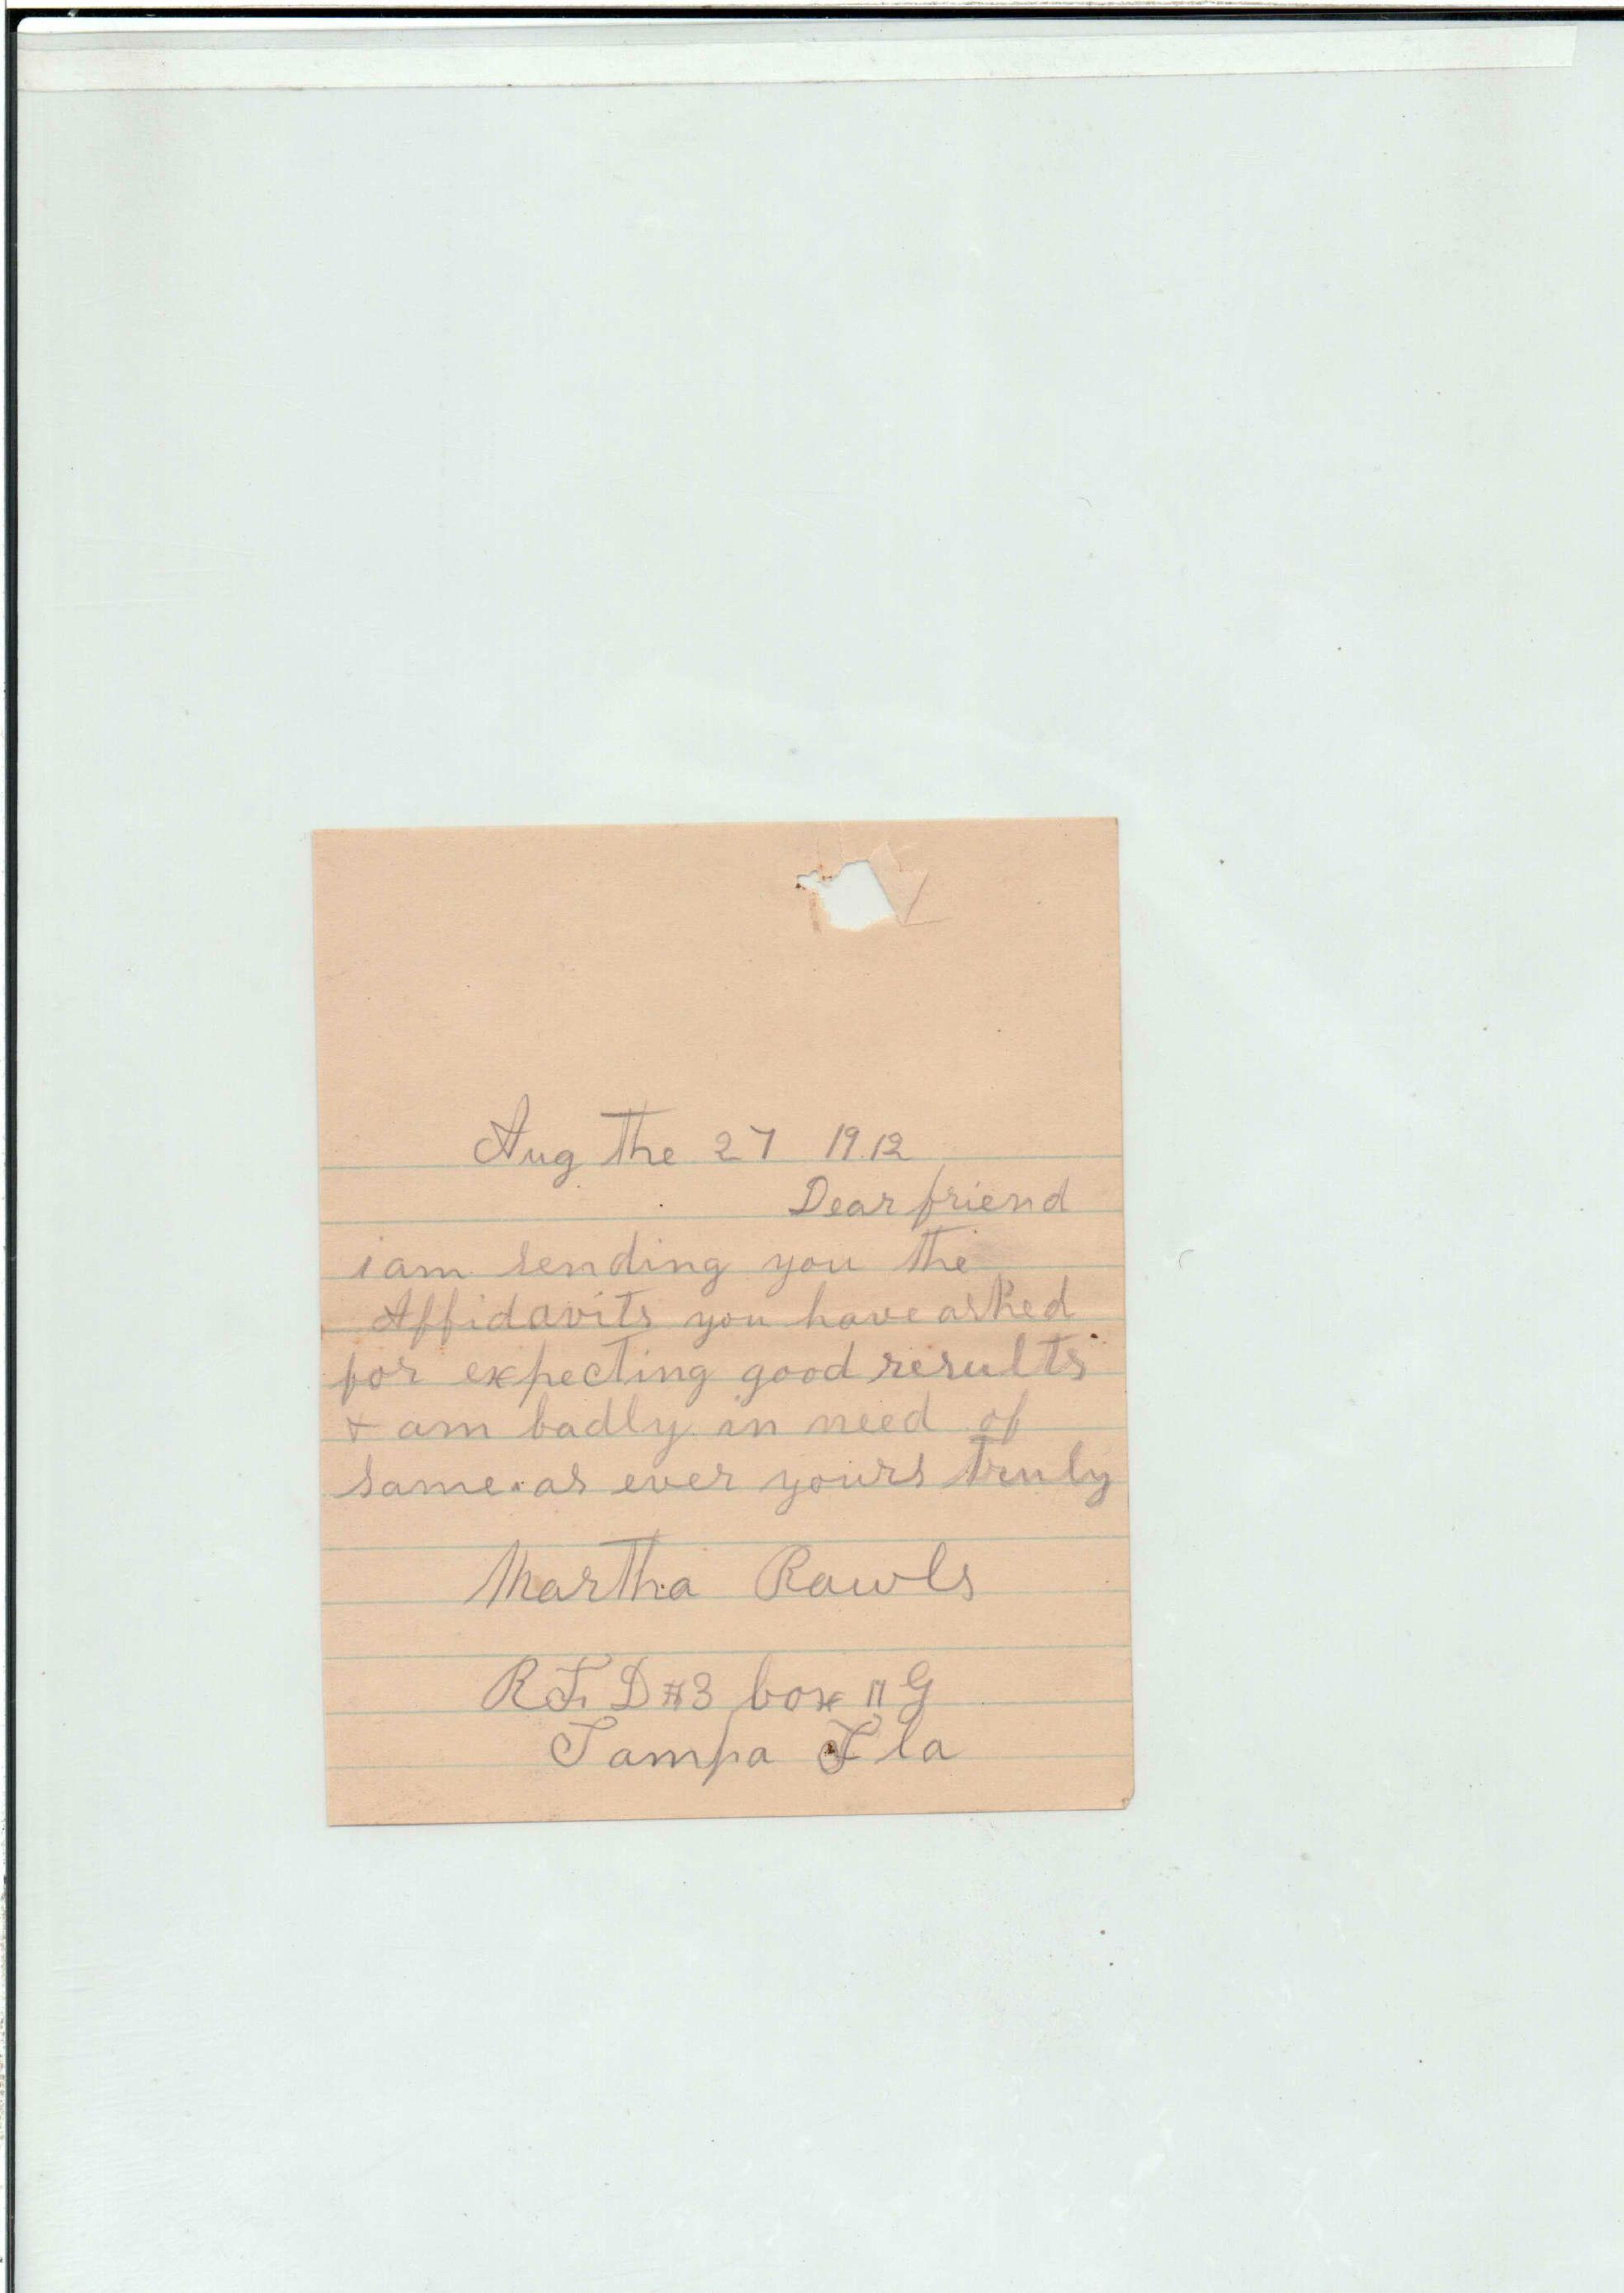 Aug the 27 1912
Dear friend
i am sending you the
Affidavits you have asked
for expecting good results
+ am badly in need of
same. as ever yours truly
Martha Rawls
R F. D #3 box 11 G
Tampa Fla